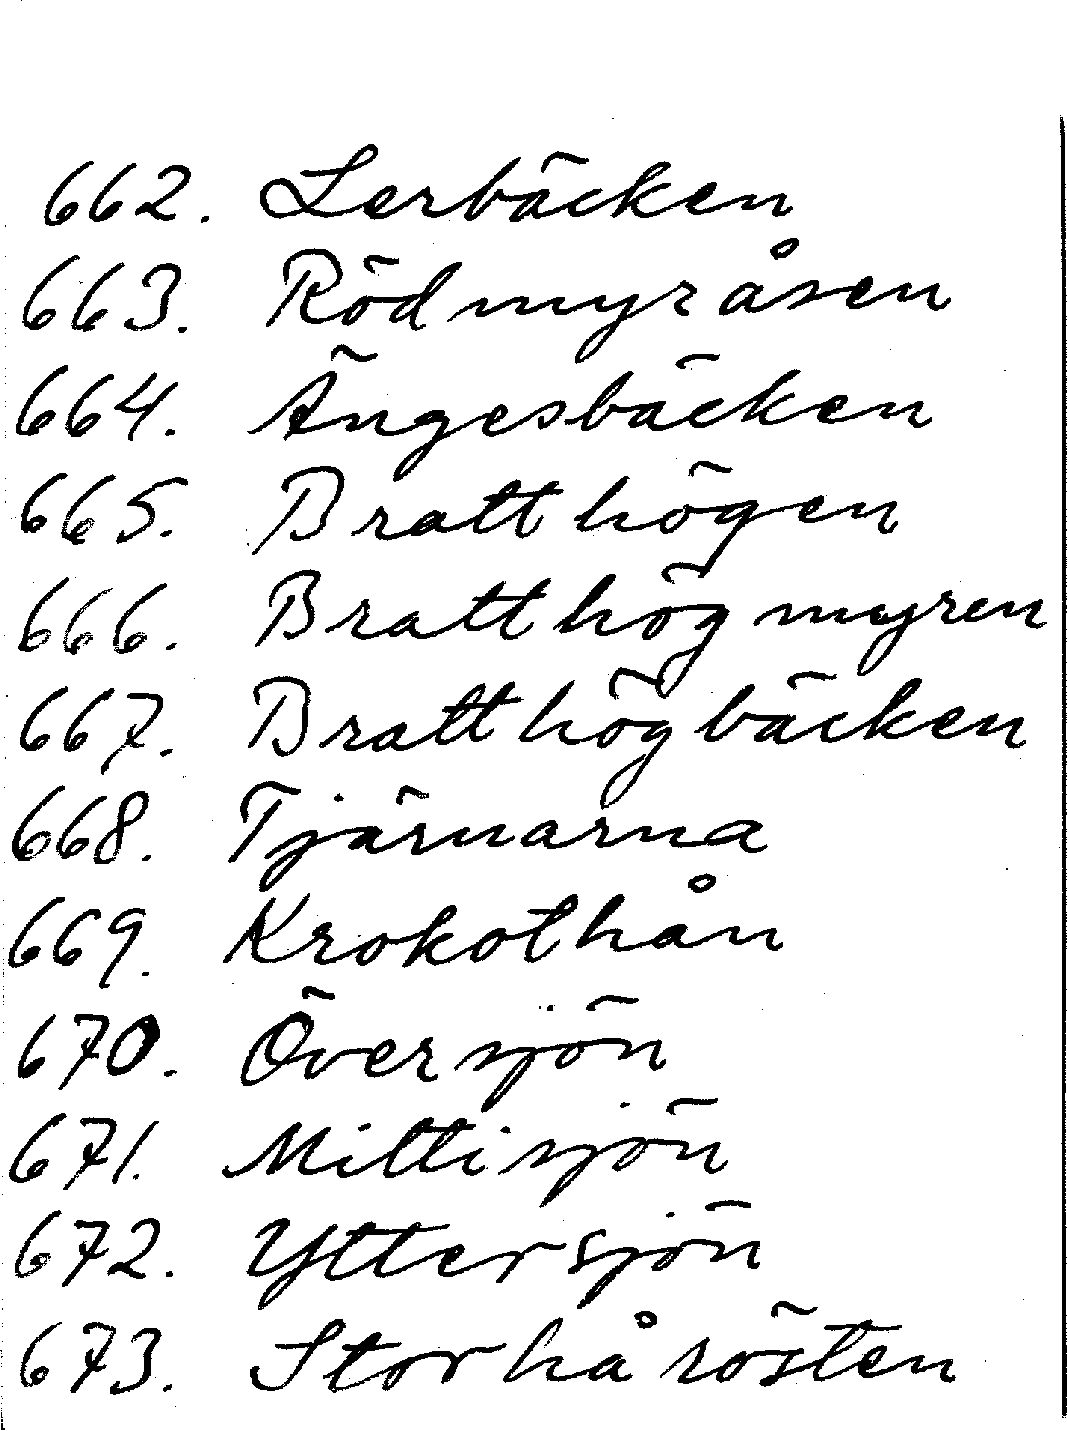 662. Lerbäcken
663. Rödmyråsen
664. Ängesbäcken
665. Bratthögen
666. Bratthögmyren
667. Bratthögbäcken
668. Tjärnarna
669. Krokothån
670. Översjön
671. Mittisjön
672. Yttersjön
673. Storhårösten